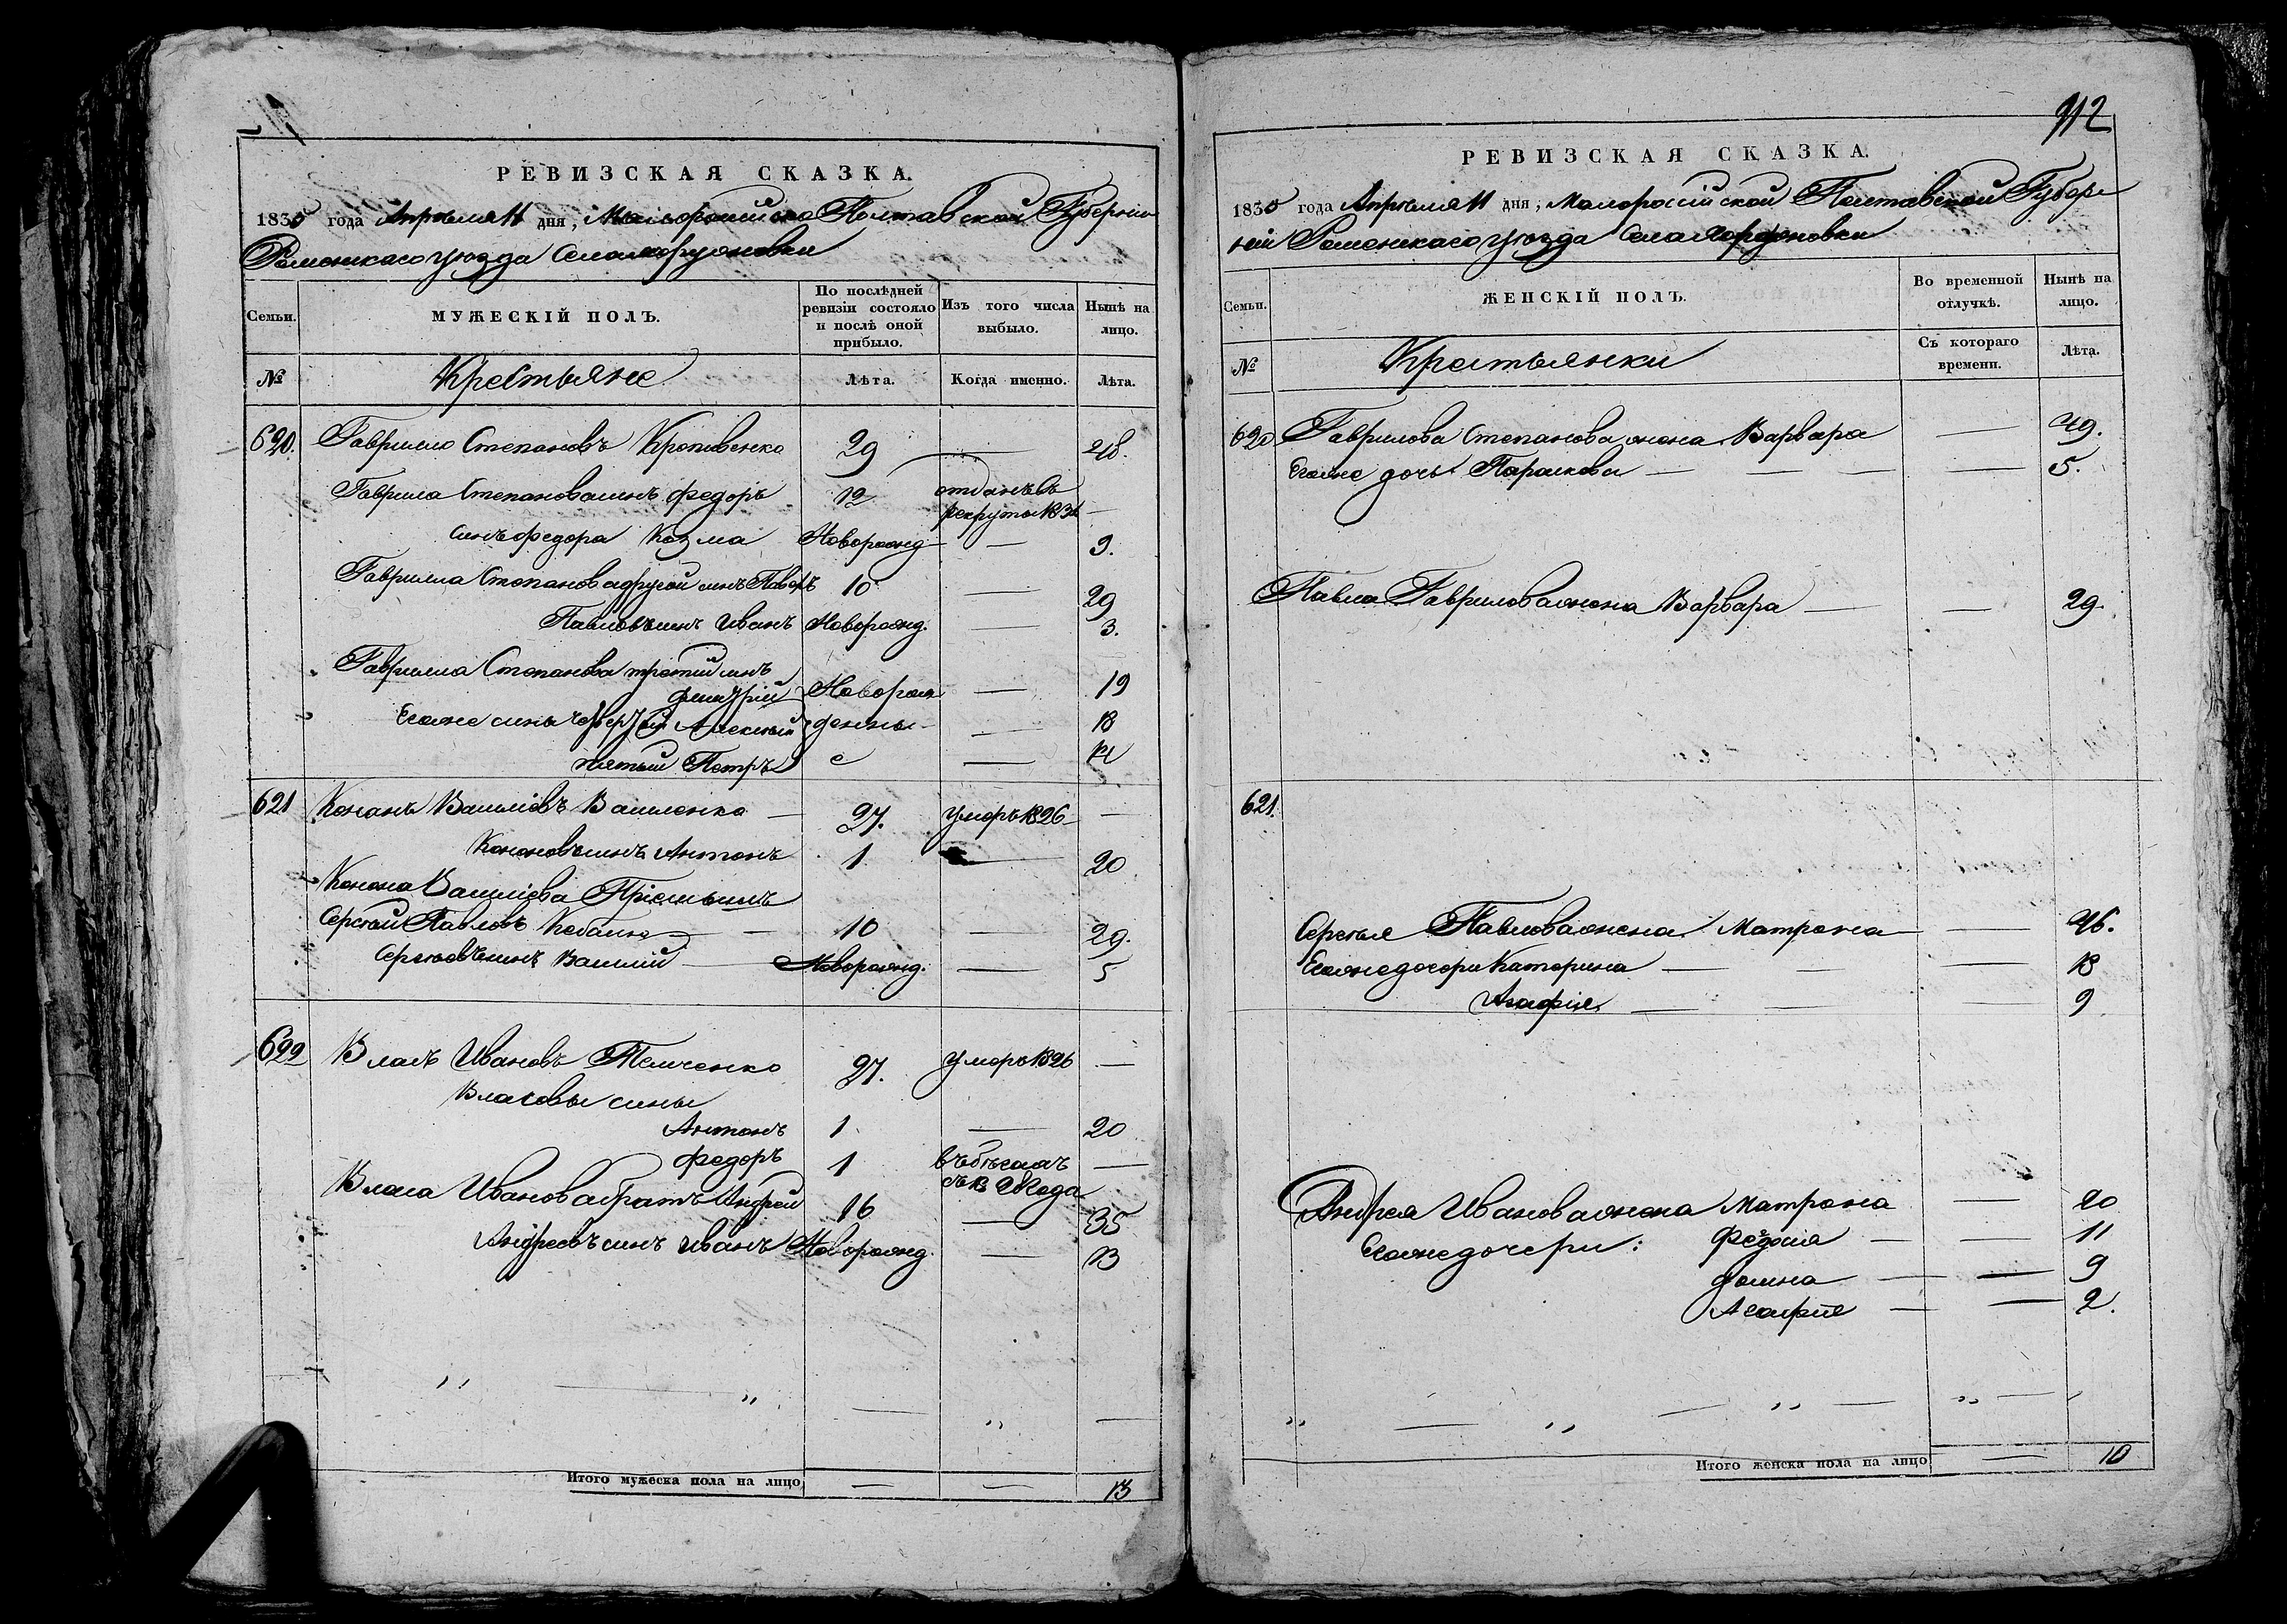 РЕВИЗСКАЯ СКАЗКА.
1835 года Апреля 11 дня, Малоросийской Полтавской Губернии
Роменскаго уезда села
Семьи.
МУЖЕСКІЙ ПОЛЪ.
По послѣдней ревизіи состояло и послѣ оной прибыло.
Изъ того числа выбыло.
Нынѣ на лицо.
№
Крестьяне
Лѣта.
Когда именно.
Лѣта.
620. Гаврило Степановъ 29 — 48.
Гаврила Степанова сынъ Федоръ 12 отданъ въ рекруты —
сынъ Федора Козма Новорожд — 9.
Гаврила Степанова другой сынъ Павелъ 10 — 29
Павловъ сынъ Иванъ Новорожд. — 3.
Гаврила Степанова третий сынъ
Дмитрій Новорож — 19
Егоже сыны четвертый Алексѣй денны — 18
пятый Петръ е —
621 Кононъ Василіевъ Василенко — 27. умеръ 1826 —
Кононовъ сынъ Антонъ 1 — 20
Конона Василіева Пріемышъ
Сергѣй Павловъ 10 — 29.
Сергѣевъ сынъ Василій — Новорожд. — 5
622 Власъ Ивановъ 27. умеръ 1826 —
Власовы сыны
Антонъ 1. — 20
Федоръ 1 въ бегахъ съ —
Власа Иванова братъ Андрей 16 — 35
Андреевъ сынъ Иванъ Новорожд. — 13
Итого мужеска пола на лицо — — 13
912
РЕВИЗСКАЯ СКАЗКА.
1835 года Апреля 11 дня, Малоросійской Полтавской Губер
ніи Роменскаго уезда села
Семьи.
ЖЕНСКІЙ ПОЛЪ.
Во временной отлучкѣ.
Нынѣ на лицо.
№
Крестьянки
Съ котораго времени.
Лѣта.
620 Гаврилова Степанова жена Варвара — 49.
Егоже дочь Параскова — — — 5.
Павла Гаврилова жена Варвара — — 29.
621.
Сергѣя Павлова жена Матрона — — 46.
Егоже дочери Катерина — — — 18
Агафія — — 9
Андрея Иванова жена Матрона — 20
Егоже дочери: Федосія — — 11
Домна — — 9
Агафія — — 2.
Итого женска пола на лицо — 10